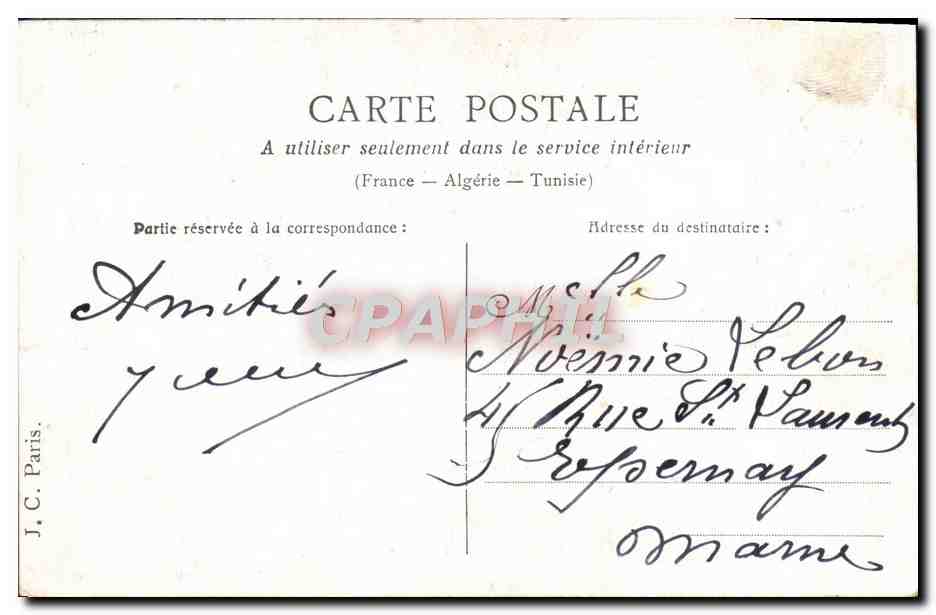 CARTE POSTALE
A utiliser seulement dans le service intérieur
(France — Algérie — Tunisie)
Partie réservée à la correspondance :
Amitiés
Adresse du destinataire :
Melle
Noëmie Lebon
45 Rue St Laurent
Epernay
Marne
J. C. Paris.
CPAPHIL